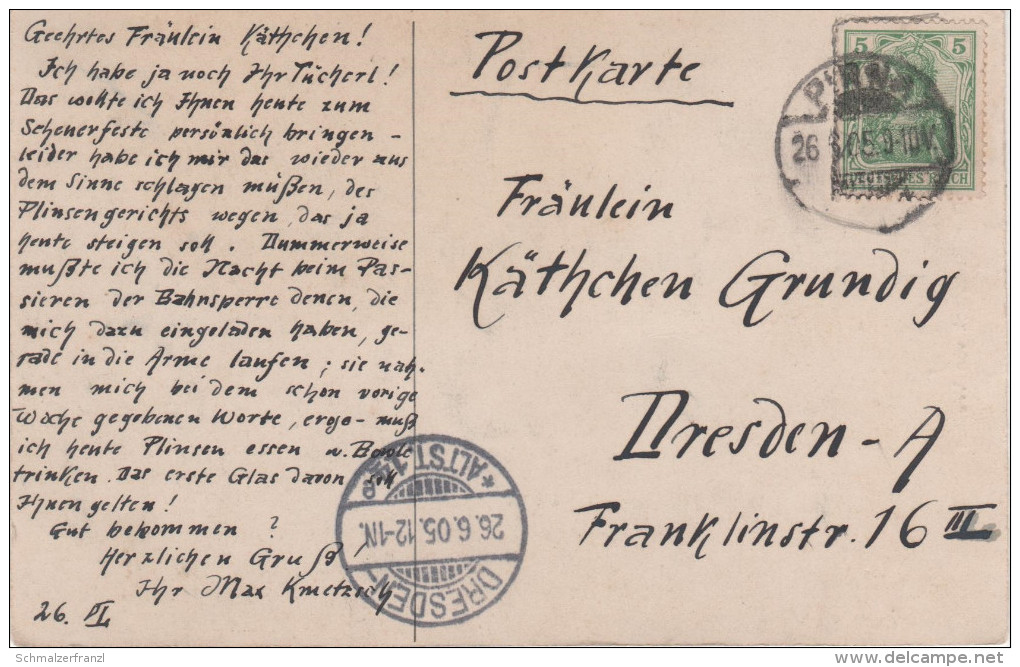 Geehrtes Fräulein Käthchen!
Ich habe ja noch Ihr Tücherl!
Das wollte ich Ihnen heute zum
Scheuerfeste persönlich bringen –
leider habe ich mir das wieder aus
dem Sinne schlagen müßen, des
Plinsengerichts wegen, das ja
heute steigen soll. Dummerweise
mußte ich die Nacht beim Pas-
sieren der Bahnsperre denen, die
mich dazu eingeladen haben, ge-
rade in die Arme laufen; sie nah-
men mich bei dem schon vorige
Woche gegebenen Worte, ergo – muß
ich heute Plinsen essen u. Bowle
trinken. Das erste Glas davon soll
Ihnen gelten!
Gut bekommen?
Herzlichen Gruß
Ihr Max
26. VI.
Postkarte
Fräulein
Käthchen Grundig
Dresden - A
Franklinstr. 16 III
5 5
DEUTSCHES REICH
PIRNA
26 6 05. 9-10V.
DRESDEN-
26.6.05.12-1N.
* ALTST. 1
Schmalzerfranzl
delcampe.net